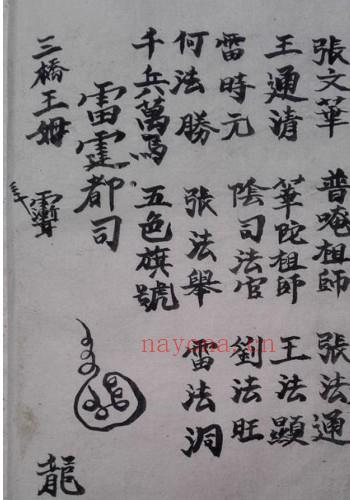 張文華 普唵祖師 張法通
王通清 華陀祖師 王法顯
雷時元 陰司法官 劉法旺
何法勝 張法舉 雷法洞
千兵萬馬 五色旗號
雷霆都司
三橋王姆
龍
nayona.cn